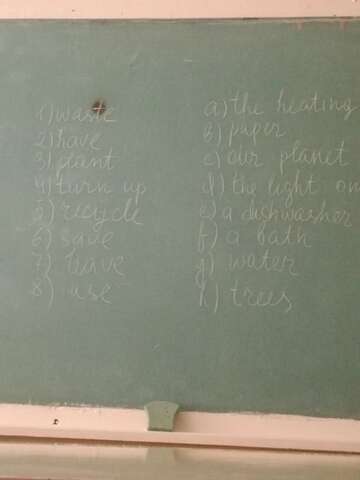 1) waste
2) have
3) plant
4) turn up
5) recycle
6) save
7) leave
8) use
a) the heating
b) paper
c) our planet
d) the light on
e) a dishwasher
f) a bath
g) water
h) trees